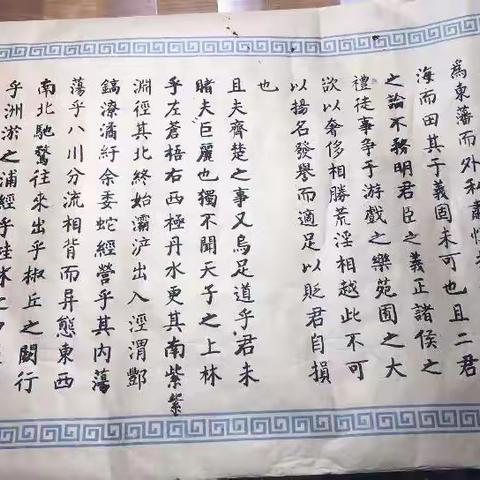 為東藩而外私肅
海而田其于義固未可也且二君
之論不務明君臣之義正諸侯之
禮徒事爭乎游戲之樂苑囿之大
欲以奢侈相勝荒淫相越此不可
以揚名發譽而適足以貶君自損
也
且夫齊楚之事又烏足道乎君未
睹夫巨麗也獨不聞天子之上林
乎左蒼梧右西極丹水更其南紫紫
淵徑其北終始灞浐出入涇渭酆
鎬潦潏紆余委蛇經營乎其內蕩
蕩乎八川分流相背而异態東西
南北馳騖往來出乎椒丘之闕行
乎洲淤之浦經乎桂林之中